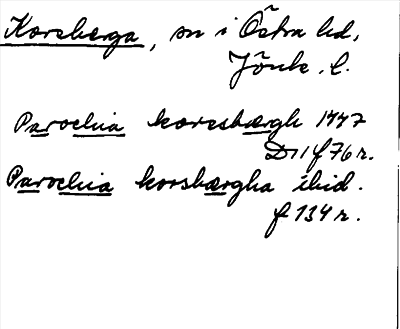 Korsberga, sn i Östra hd,
Jönk. l.
Parochia korcsbærgh 1447
D 11 f 76 r.
Parochia korsbærgha ibid.
f 134 r.